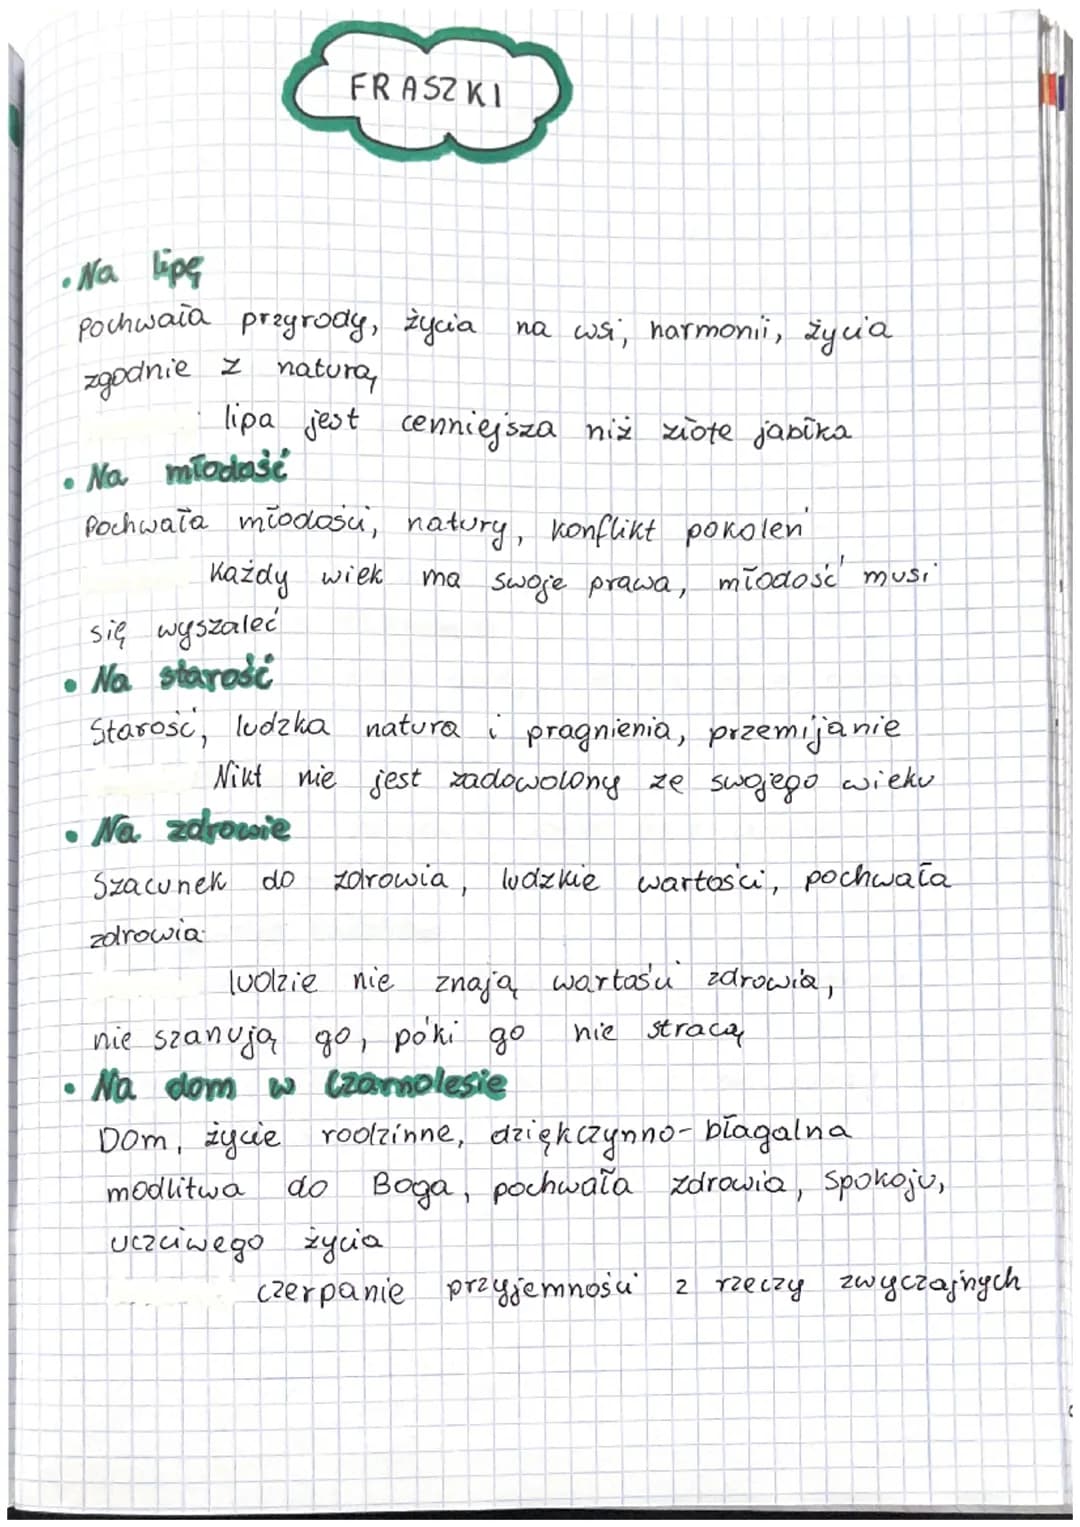 FRASZKI
• Na lipę
Pochwała przyrody, życia na wsi, harmonii, życia
zgodnie z naturą
lipa jest cenniejsza niż złote jabłka
• Na młodość
Pochwała młodości, natury, konflikt pokoleń
Każdy wiek ma swoje prawa, młodość musi
się wyszaleć
• Na starość
Starość, ludzka natura i pragnienia, przemijanie
Nikt nie jest zadowolony ze swojego wieku
• Na zdrowie
Szacunek do zdrowia, ludzkie wartości, pochwała
zdrowia
ludzie nie znają wartości zdrowia,
nie szanują go, póki go nie stracą
• Na dom w Czarnolesie
Dom, życie rodzinne, dziękczynno-błagalna
modlitwa do Boga, pochwała zdrowia, spokoju,
uczciwego życia
czerpanie przyjemności z rzeczy zwyczajnych